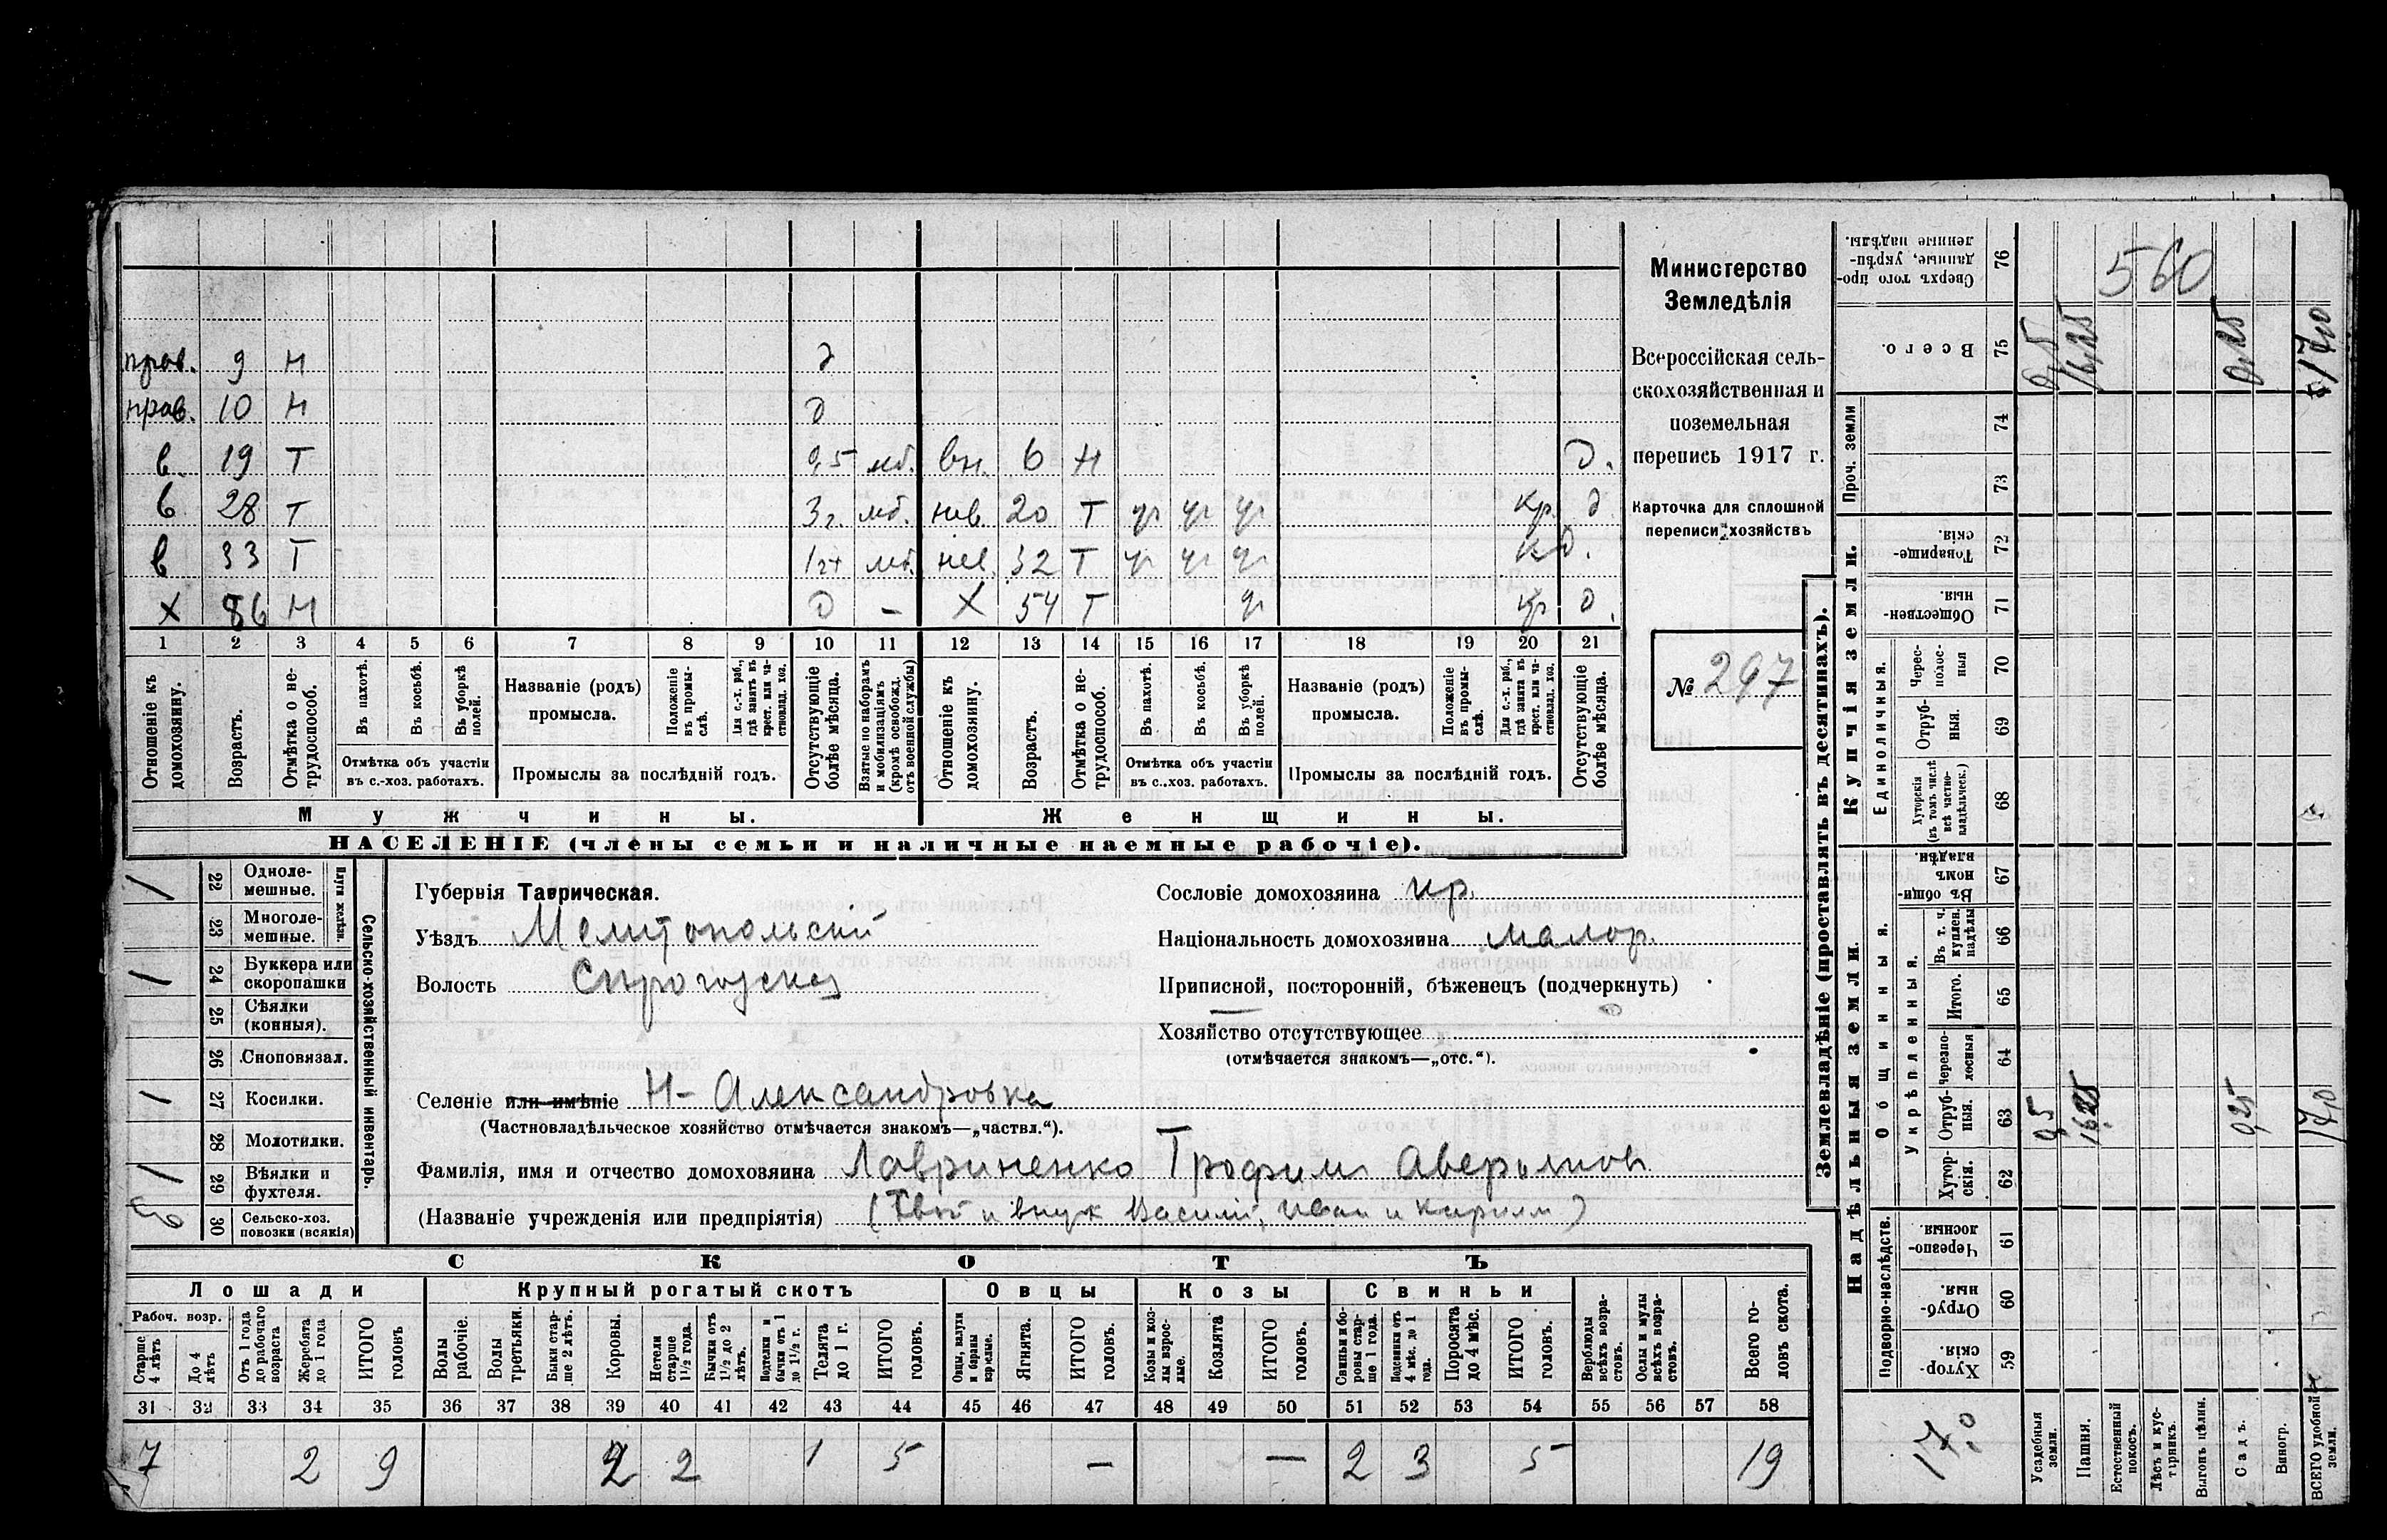 прав. 9 Н д
прав. 10 Н д
в. 19 Т 0,5 мб. вн. 6 Н д.
в 28 Т 3 г. мб. нев. 20 Т уч уч уч кр. д
в 33 Т мб. нев. 32 Т уч уч уч д.
Х 86 Н д – Х 54 Т уч кр д.
1 2 3 4 5 6 7 8 9 10 11 12 13 14 15 16 17 18 19 20 21
Отношеніе къ домохозяину.
Возрастъ.
Отмѣтка о нетрудоспособ.
Въ пахотѣ.
Въ косьбѣ.
Въ уборкѣ полей.
Отмѣтка объ участіи
въ с.-хоз. работахъ.
Названіе (родъ)
промысла.
Положеніе въ промыслѣ.
Для с.-х. раб., гдѣ занятъ въ крест. или частновлад. хоз.
Промыслы за послѣдній годъ.
Отсутствующіе болѣе мѣсяца.
Взятые по наборамъ и мобилизаціямъ (кромѣ освобожд. отъ военной службы)
Отношеніе къ домохозяину.
Возрастъ.
Отмѣтка о нетрудоспособ.
Въ пахотѣ.
Въ косьбѣ.
Въ уборкѣ полей.
Отмѣтка объ участіи
въ с.-хоз. работахъ.
Названіе (родъ)
промысла.
Положеніе въ промыслѣ.
Для с.-х. раб., гдѣ занята въ крест. или частновлад. хоз.
Промыслы за послѣдній годъ.
Отсутствующіе болѣе мѣсяца.
Мужчины. Женщины.
НАСЕЛЕНІЕ (члены семьи и наличные наемные рабочіе).
Министерство
Земледѣлія
Всероссійская сель-
скохозяйственная и
поземельная
перепись 1917 г.
Карточка для сплошной
переписи хозяйствъ
№ 297
Сельско-хозяйственный инвентарь.
Плуги желѣзн.
/ 22 Одноле-
мешные.
23 Многоле-
мешные.
/ 24 Буккера или
скоропашки
25 Сѣялки
(конныя).
26 Сноповязал.
/ 27 Косилки.
28 Молотилки.
/ 29 Вѣялки и
фухтеля.
30 Сельско-хоз.
повозки (всякія)
Губернія Таврическая.
Уѣздъ Мелитопольскій
Волость Сирогозская
Сословіе домохозяина кр.
Національность домохозяина малор.
Приписной, посторонній, бѣженецъ (подчеркнуть)
Хозяйство отсутствующее
(отмѣчается знакомъ—„отс.“).
Селеніе или имѣніе Н- Александровка
(Частновладѣльческое хозяйство отмѣчается знакомъ—„частвл.“).
Фамилія, имя и отчество домохозяина Лавриненко Трофим Аверьянов
(Названіе учрежденія или предпріятія) и внук Василий, Иван и Кирилл)
СКОТЪ
Лошади Крупный рогатый скотъ Овцы Козы Свиньи
Рабоч. возр.
Старше 4 лѣтъ
До 4 лѣтъ
Отъ 1 года до рабочаго возраста
Жеребята до 1 года
ИТОГО головъ
Волы рабочіе.
Волы третьяки.
Быки старше 2 лѣтъ.
Коровы.
Нетели старше 1½ года.
Бычки отъ 1½ до 2 лѣтъ.
Подтелки и бычки отъ 1 до 1½ г.
Телята до 1 г.
ИТОГО головъ.
Овцы, валухи и бараны взрослые.
Ягнята.
ИТОГО головъ.
Козы и козлы взрослые.
Козлята
ИТОГО головъ.
Свиньи и боровы старше 1 года.
Подсвинки отъ 4 мѣс. до 1 года.
Поросята до 4 мѣс.
ИТОГО головъ.
Верблюды всѣхъ возрастовъ.
Ослы и мулы всѣхъ возрастовъ.
Всего головъ скота.
31 32 33 34 35 36 37 38 39 40 41 42 43 44 45 46 47 48 49 50 51 52 53 54 55 56 57 58
7 2 9 2 2 1 5 – – 2 3 5 19
Землевладѣніе (проставлять въ десятинахъ).
Сверхъ того проданные, укрѣпленные надѣлы. 76
560
Всего. 75 0,5 16,25 0,25 17,0
Проч. земли
74
73
Купчія земли.
Товарищескія. 72
Общественныя. 71
Единоличныя.
Чересполосныя 70
Отрубныя. 69
Хуторскія (въ томъ числѣ всѣ частновладѣльческ.) 68
Надѣльныя земли.
Общинныя.
Въ общинномъ владѣн. 67
Укрѣпленныя.
Въ т. ч. куплен. надѣлы 66
Итого. 65
Черезполосныя 64
Отрубныя. 63 0,5 16,25 0,25 17,0
Хуторскія. 62
Подворно-наслѣдств.
Черезполосныя 61
Отрубныя. 60
Хуторскія. 59
17,0
Усадебныя земли.
Пашня.
Естественный покосъ.
Лѣсъ и кустарникъ.
Выгонъ цѣлин.
Садъ.
Виногр.
ВСЕГО удобной земли.